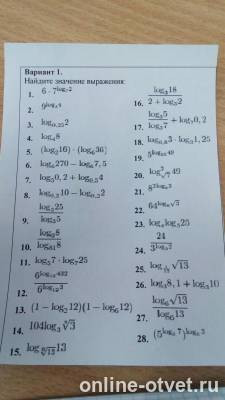 Вариант 1.
Найдите значение выражения:
1. 6 · 7^{log_7 2}
2.
3. log_{0,25} 2
4. log_4 8
5. (log_2 16) · (log_6 36)
6. log_6 270 − log_6 7,5
7. log_5 0,2 + log_{0,5} 4
8. log_{0,3} 10 − log_{0,3}
9. log_3 25 / log_3 5
10. log_9 8 / log_{81} 8
11. log_5 7 · log_7 25
12.
13. (1 − log_2 12)(1 − log_6 12)
14. 104 log_3 ∛3
15. 13
16. log_3 18 / 2 + log_3 2
17. log_3 5 / log_3 7 + log_7 0,2
18. log_{0,8} 3 · log_3 1,25
19. 5^{log_{25} 49}
20. 49
21. 8^{2 log_8 3}
22. 64^{log_8 √3}
23. log_4 log_5 25
24. 24 / 3^{log_3 2}
25. √13
26. log_3 8,1 + log_3 10
27. log_6 √13 / log_6 13
28.
online-otvet.ru